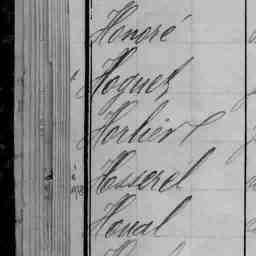 Honoré
Hoguet
Horlier
Hosserel
Houal